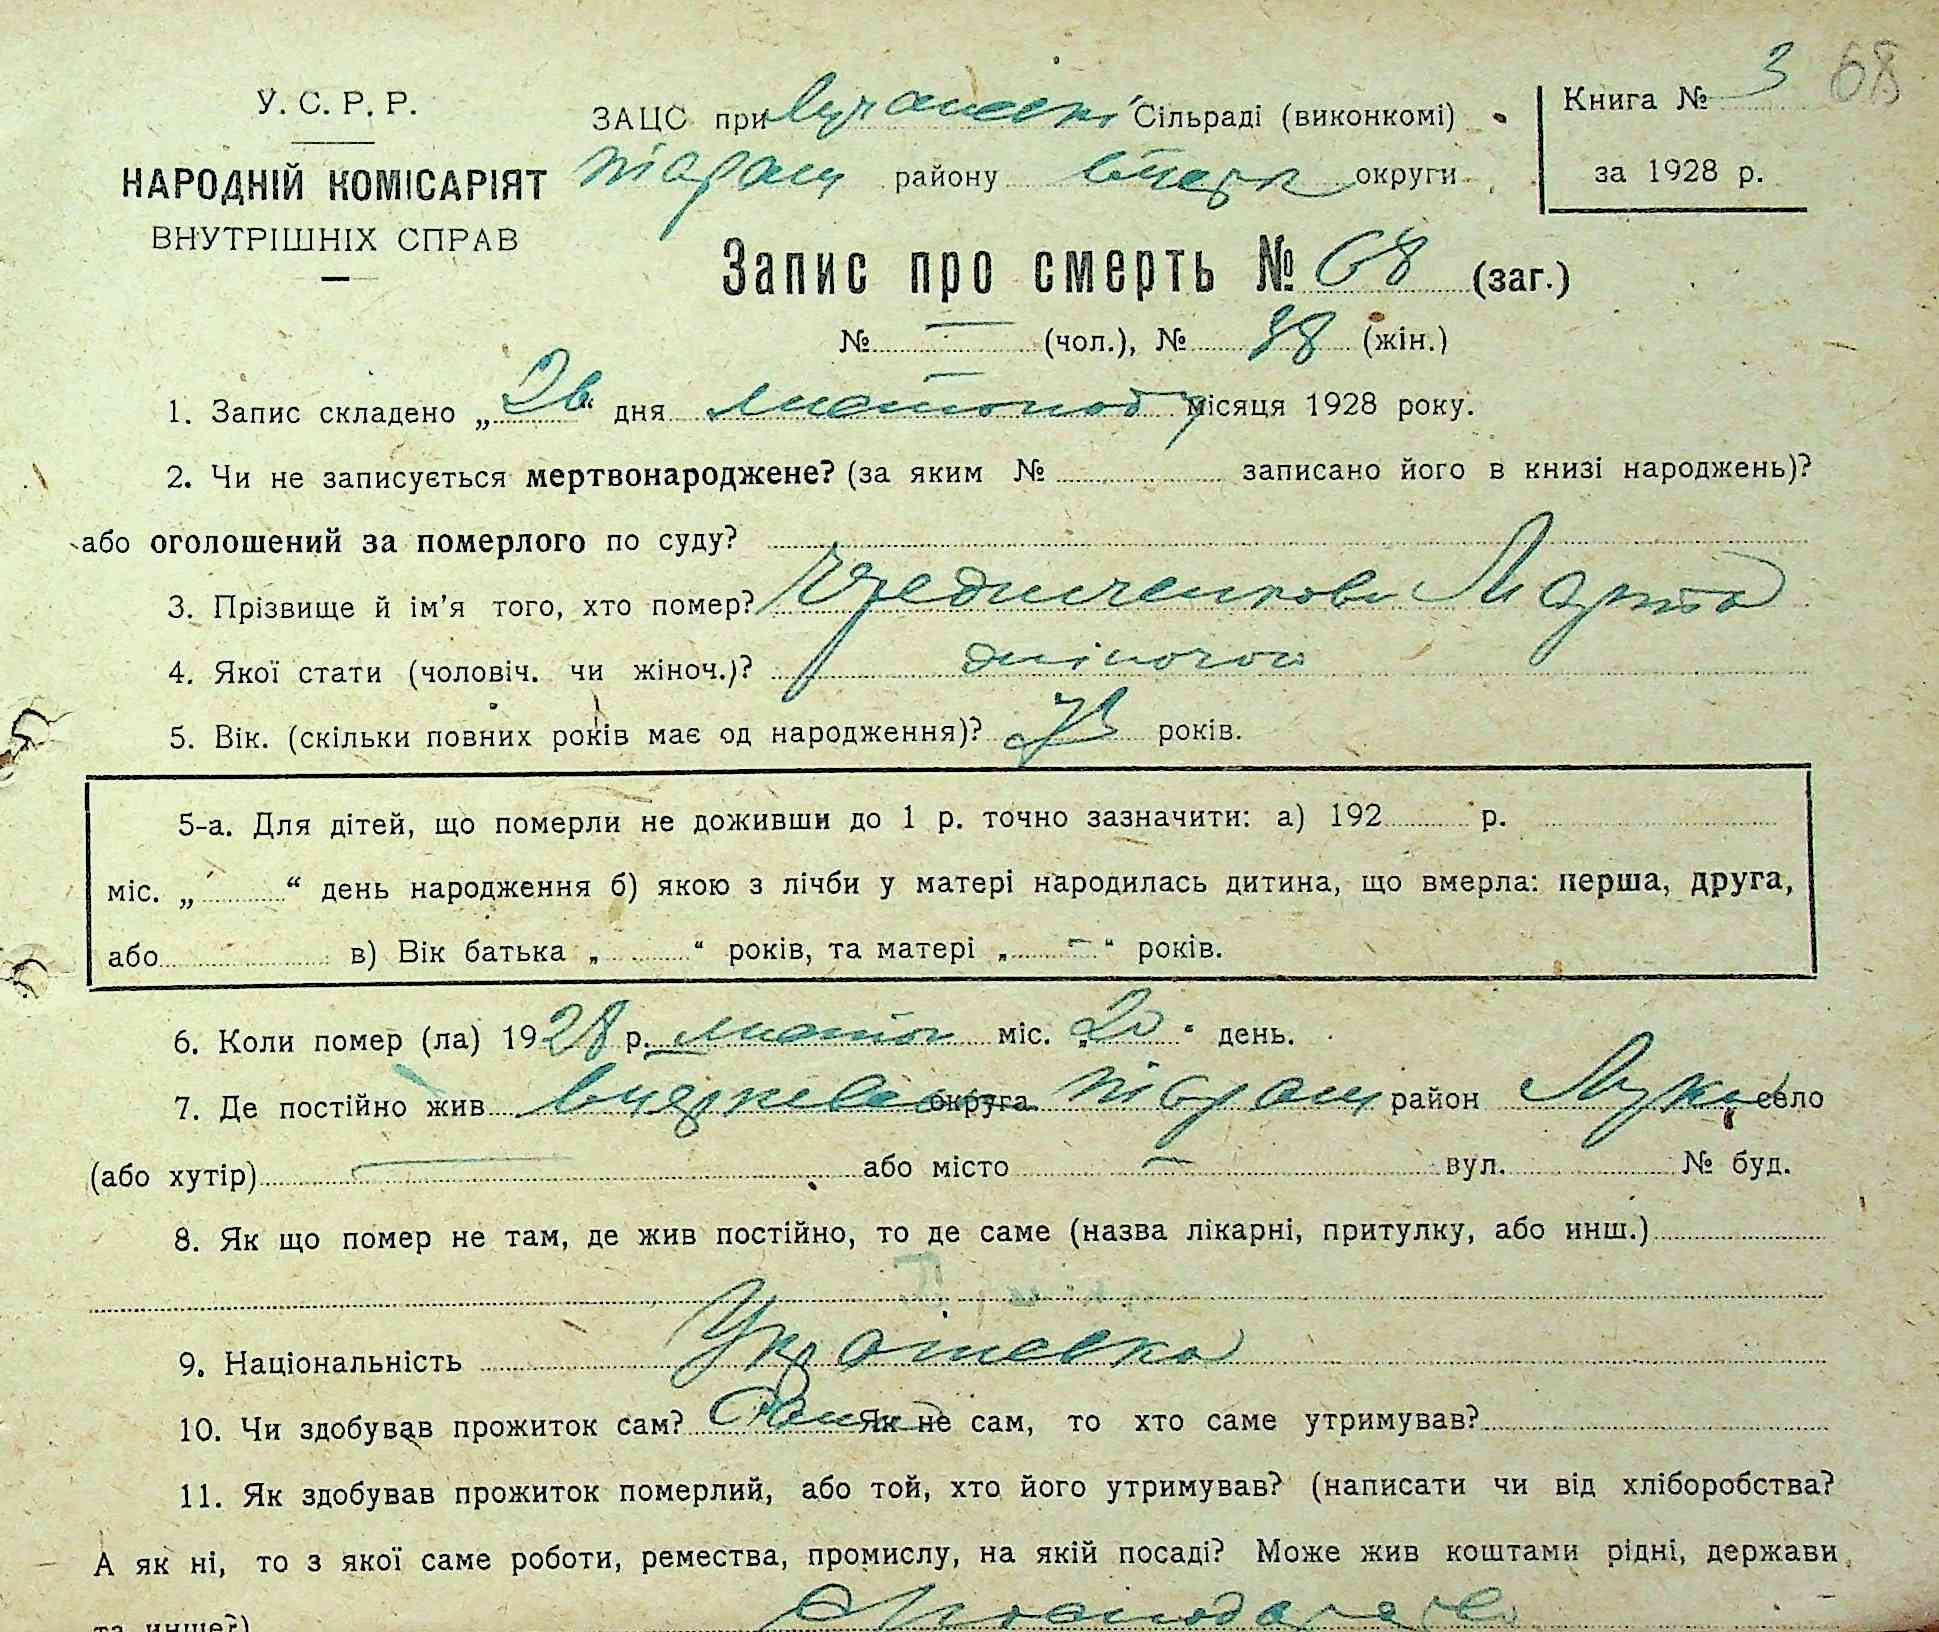 У. С. Р. Р.
НАРОДНІЙ КОМІСАРІЯТ
ВНУТРІШНІХ СПРАВ
ЗАЦС при Сільраді (виконкомі)
району округи
Книга № 3 68
за 1928 р.
Запис про смерть № 68 (заг.)
№ — (чол.), № 38 (жін.)
1. Запис складено „ “ дня листопаду місяця 1928 року.
2. Чи не записується мертвонароджене? (за яким № записано його в книзі народжень)?
або оголошений за померлого по суду?
3. Прізвище й ім’я того, хто помер? Чередниченкова Марта
4. Якої стати (чоловіч. чи жіноч.)? жіночої
5. Вік. (скільки повних років має од народження)? років.
5-а. Для дітей, що померли не доживши до 1 р. точно зазначити: а) 192 р.
міс. „ “ день народження б) якою з лічби у матері народилась дитина, що вмерла: перша, друга,
або в) Вік батька „ “ років, та матері „ — “ років.
6. Коли помер (ла) 1928 р. листоп міс. „20“ день.
7. Де постійно жив округа район Лука село
(або хутір) — або місто — вул. № буд.
8. Як що помер не там, де жив постійно, то де саме (назва лікарні, притулку, або инш.)
9. Національність Українка
10. Чи здобував прожиток сам? Сама Як не сам, то хто саме утримував?
11. Як здобував прожиток померлий, або той, хто його утримував? (написати чи від хліборобства?
А як ні, то з якої саме роботи, ремества, промислу, на якій посаді? Може жив коштами рідні, держави
та инше?)